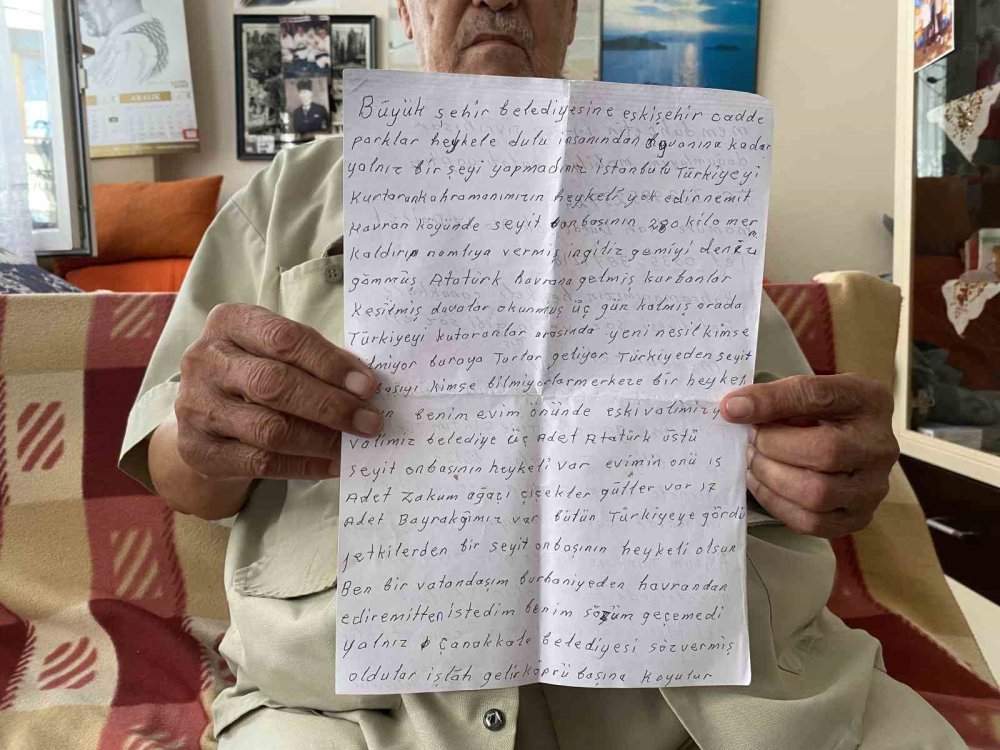 ARALIK
Büyük şehir belediyesine eskişehir cadde
parklar heykele dulu insanından hayvonına kadar
yalnız bir şeyi yapmadınız istanbulu Türkiyeyi
Kurtarankahramanımızın heykeli yok edirnemit
Havran köyünde seyit onbaşının 280 kilo mer
Kaldırıp namluya vermiş ingiliz gemiyi denize
gömmüş Atatürk havrana gelmiş kurbanlar
Kesilmiş davalar okunmuş üç gün kalmış orada
Türkiyeyi kutoranlar arasında yeni nesil kimse
ilmiyor buraya Turlar geliyor Türkiyeden seyit
başıyı kimse bilmiyorlarmerkeze bir heykel
un benim evim önünde eski valimiz y
valimiz belediye üç Adet Atatürk üstü
seyit onbaşının heykeli var evimin önü 15
Adet Zakum ağaçı çiçekler güller var 17
Adet Bayrakğımız var bütün Türkiyeye gördü
yetkilerden bir seyit onbaşının heykeli olsun
Ben bir vatandaşım burhaniyeden havrandan
ediremitten istedim benim sözüm geçemedi
Yalnız Çanakkale belediyesi sözvermiş
oldular işlah gelirköprü başına Koyulur